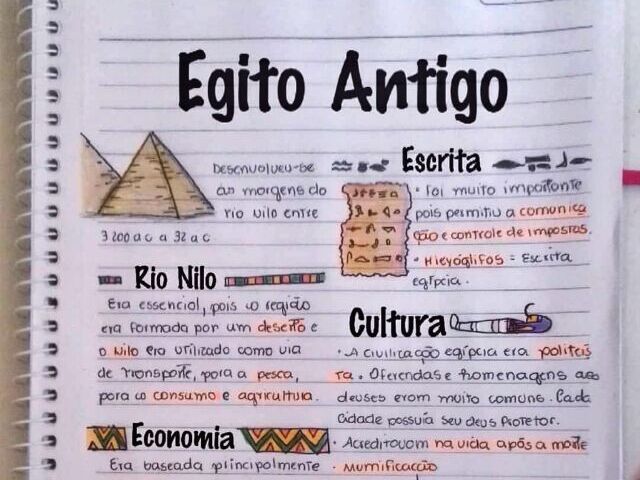 Egito Antigo
Desenvolveu-se
as margens do
rio nilo entre
3 200 a c a 32 a c
Rio Nilo
Era essencial, pois a região
era formada por um deserto e
o Nilo era utilizado como via
de transporte, para a pesca,
para o consumo e agricultura.
Economia
Era baseada principalmente
Escrita
• Foi muito importante
pois permitiu a comunica
ção e controle de impostos.
• Hieróglifos = Escrita
egípcia.
Cultura
• A civilização egípcia era politeís
ta. Oferendas e homenagens aos
deuses eram muito comuns. Cada
cidade possuia seu deus protetor.
• Acreditavam na vida após a morte
• Mumificação